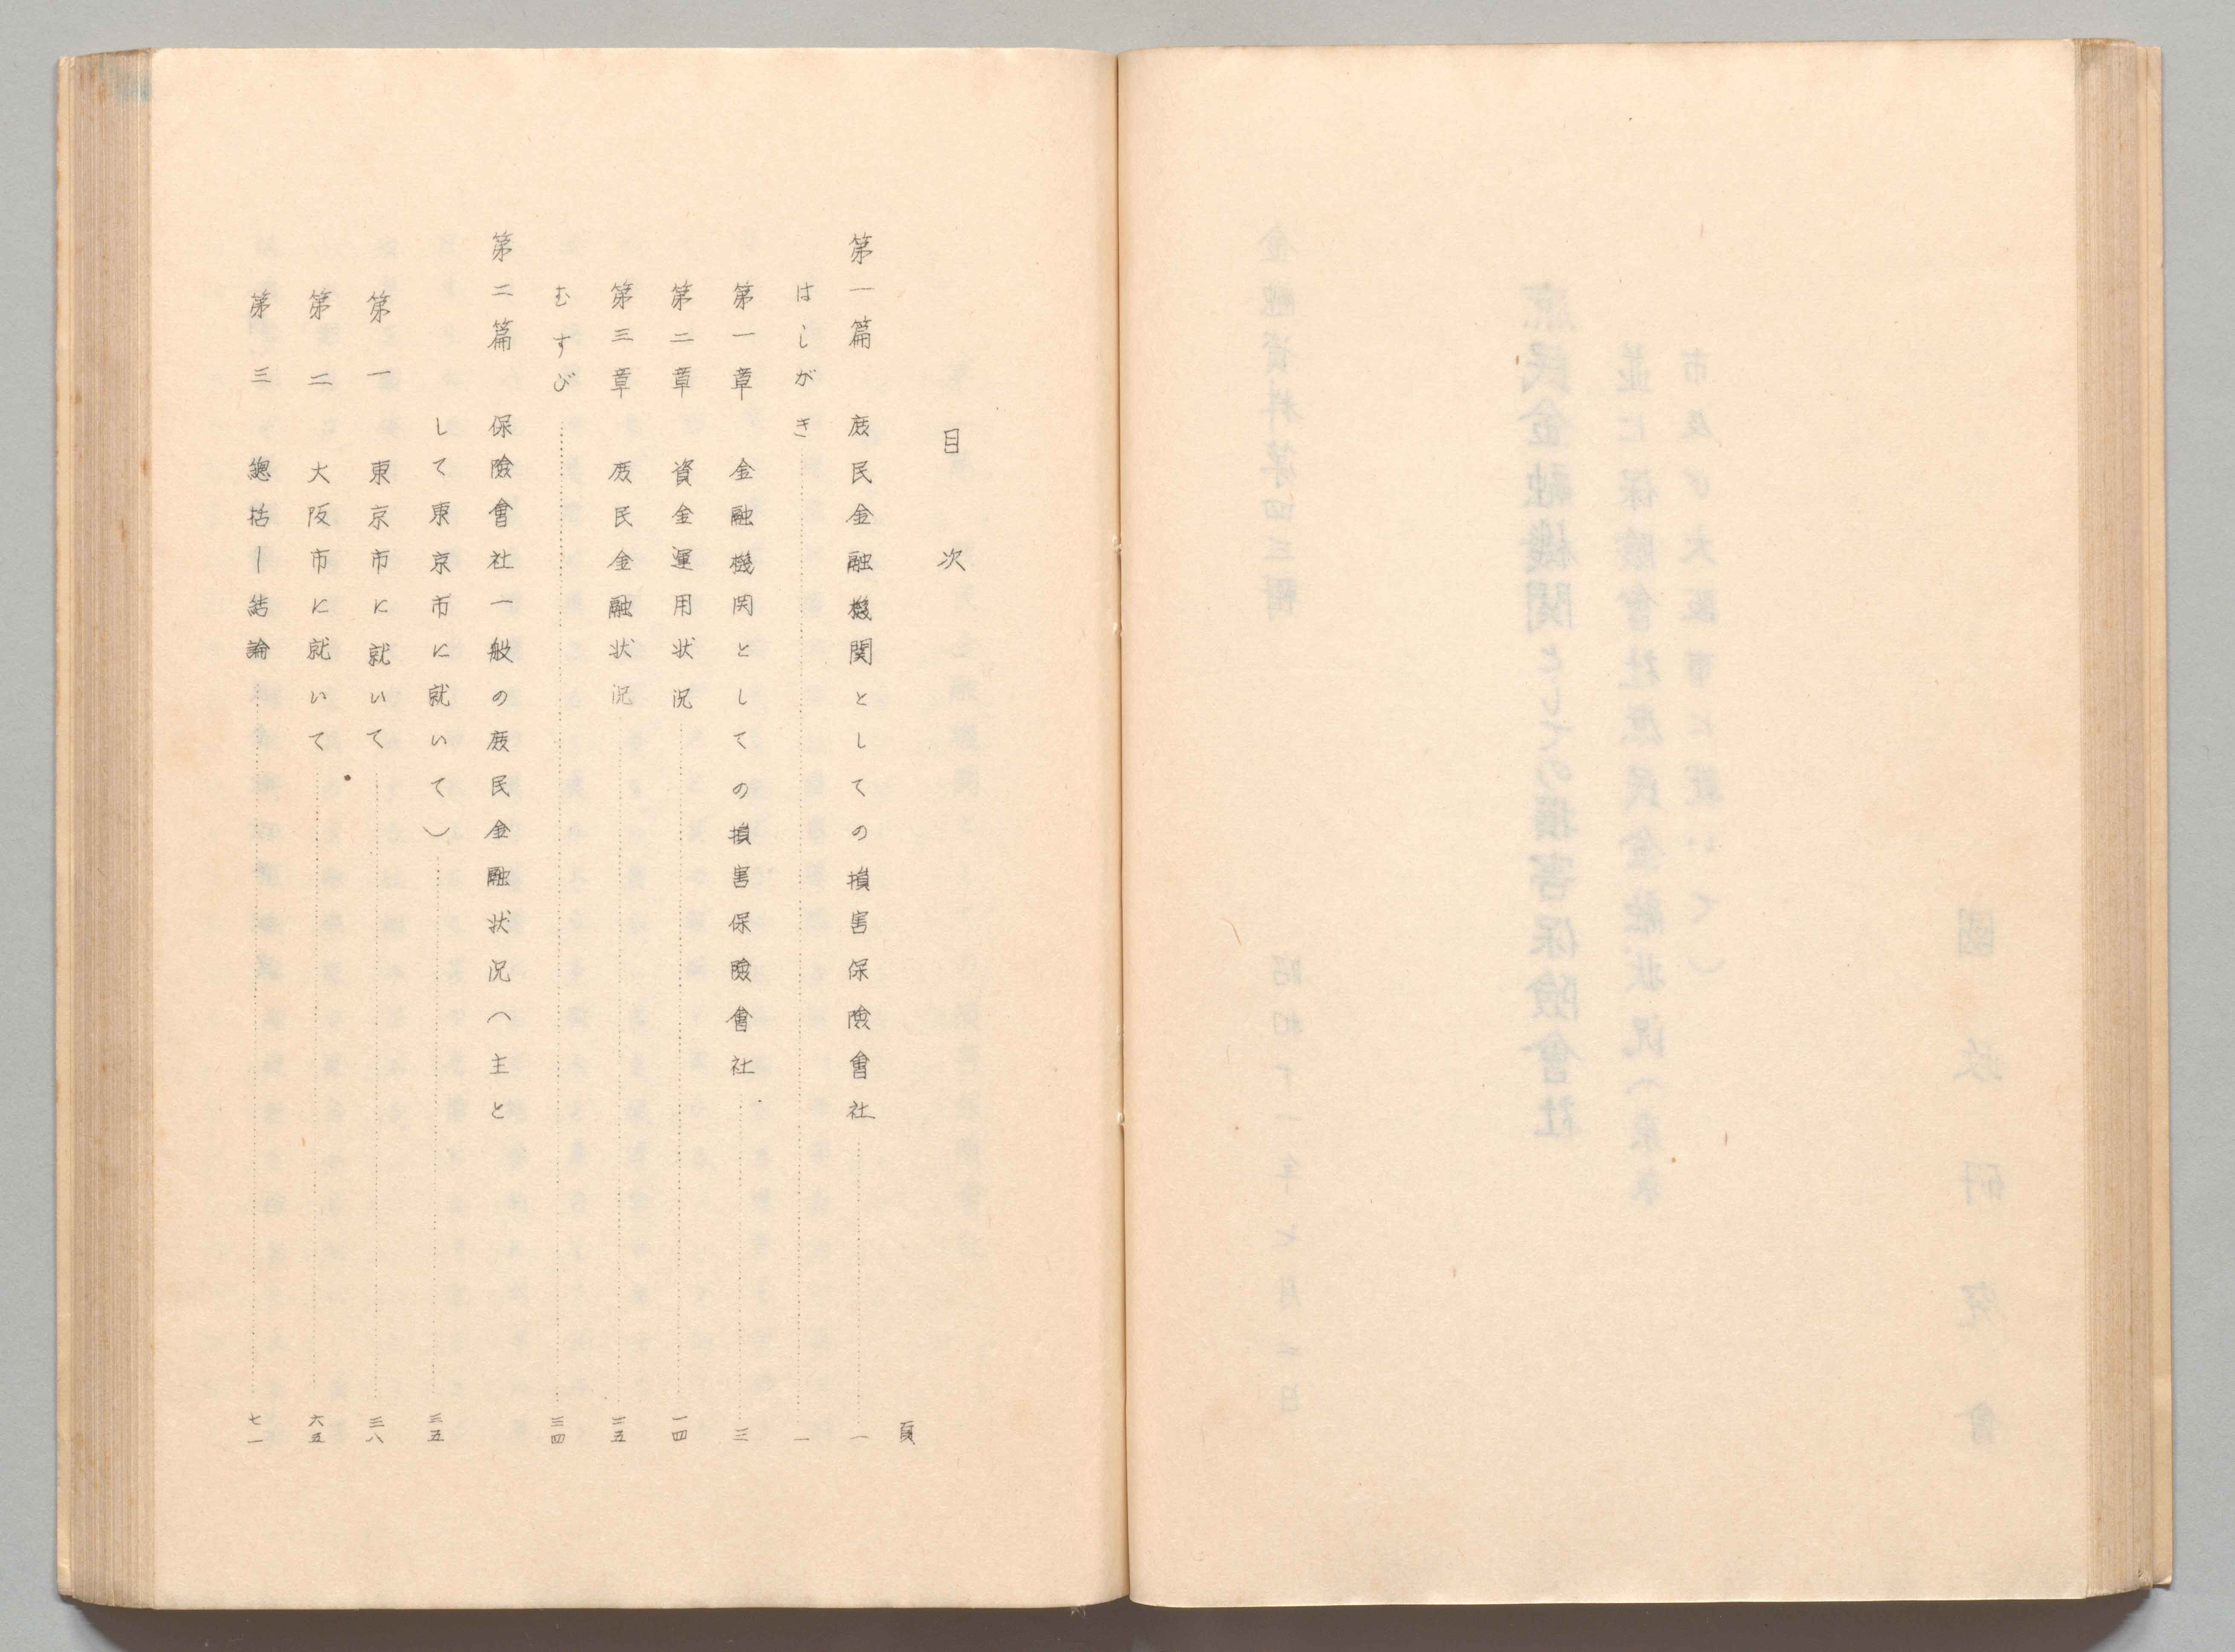 目次
頁
第一篇 庶民金融機関としての損害保險會社……一
はしがき……一
第一章 金融機関としての損害保險會社……三
第二章 資金運用状況……一四
第三章 庶民金融状況……二五
むすび……三四
第二篇 保險會社一般の庶民金融状況(主と
して東京市に就いて)……三五
第一 東京市に就いて……三八
第二 大阪市に就いて……六五
第三 總括―結論……七一